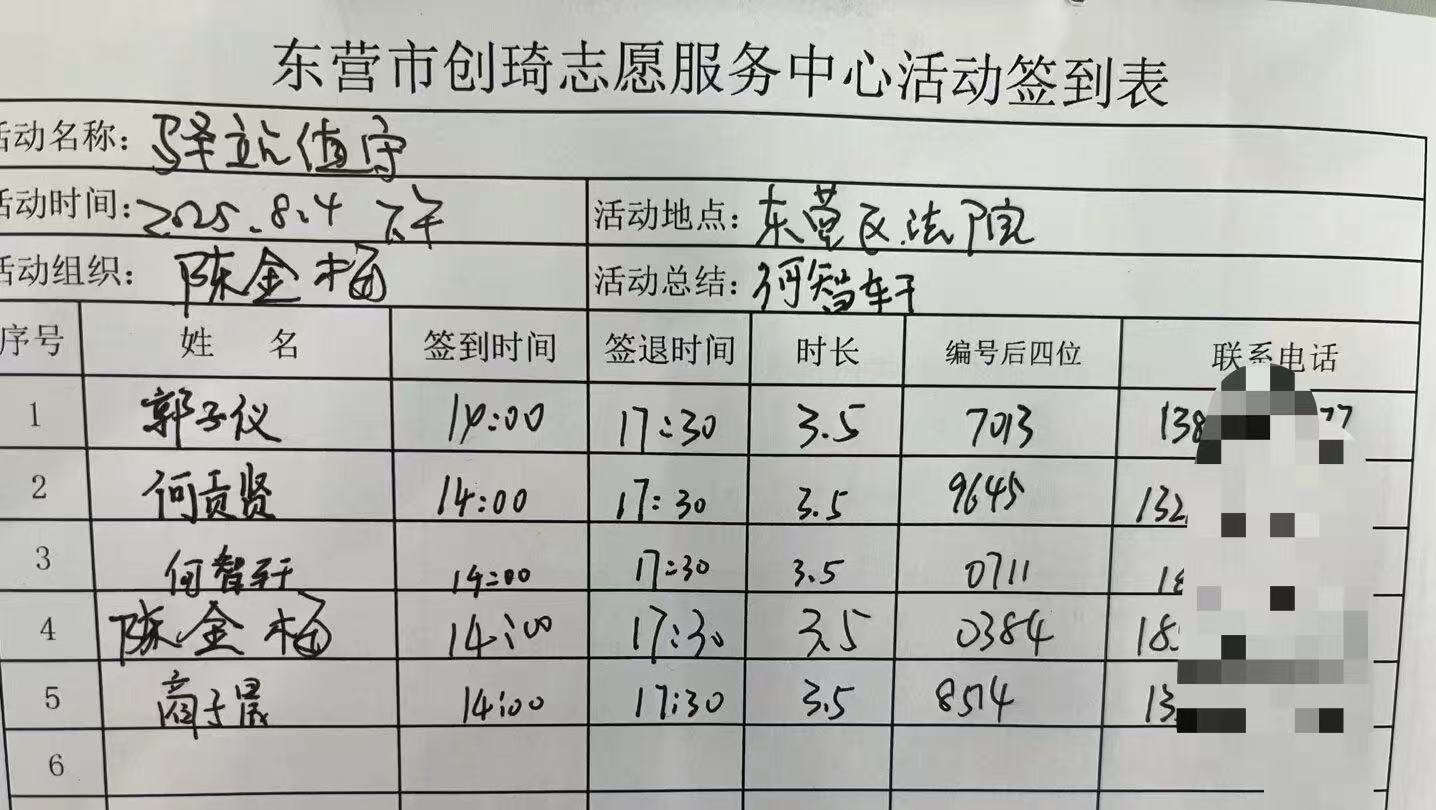 东营市创琦志愿服务中心活动签到表
活动名称：驿站值守
活动时间：2025.8.4 下午 活动地点：东营区法院
活动组织：陈金梅 活动总结：何智轩
序号 姓 名 签到时间 签退时间 时长 编号后四位 联系电话
1 郭子仪 14:00 17:30 3.5 7013 138 77
2 何贡贤 14:00 17:30 3.5 9645 132
3 何智轩 14:00 17:30 3.5 0711 18
4 陈金梅 14:00 17:30 3.5 0384 18
5 商子晟 14:00 17:30 3.5 8514 13
6